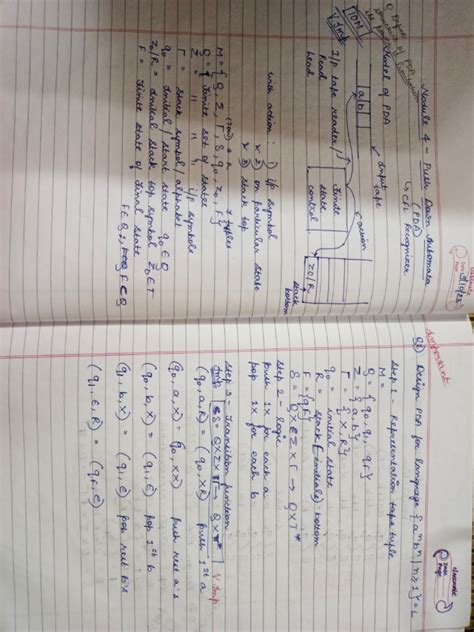 Module 4 - Push Down Automata
(PDA)
↳ CFL Recognizer
Model of PDA
IDM
V Imp
Input
tape
a|b|
action
I/p tape reader/
Read
head
finite
state
control
Z0/R
stack
bottom
with action: 1) i/p symbol
2) on particular state
3) stack top
M = { Q, Σ, Γ, δ, q0, z0, F }
7 tuples
Q = finite set of states
Σ = " " " i/p symbols
Γ = stack symbol/alphabet
q0 = initial/start state q0 ∈ Q
z0/R = initial stack top symbol Z0 ∈ Γ
F = finite state of final state
F ∈ Q
F ⊆ Q
Important
Q1) Design PDA for language { aⁿbⁿ | n ≥ 1 } = L
Step 1 - Representation tuple
M =
Q = { q0, q1, qf }
Σ = { a, b }
Γ = { X, R }
q0 = initial state
R = stack (initial) bottom
F = { qf }
δ = Q × Σ × Γ → Q × Γ*
Step 2 - Logic
push 1X for each a
pop 1X for each b
Step 3 - Transition function
δ = Q × Σ × Γ → Q × Γ* V Imp
(q0, a, R) = (q0, XR) push 1st a
(q0, a, X) = (q0, XX) push rest a's
(q0, b, X) = (q1, ε) pop 1st b
(q1, b, X) = (q1, ε) pop rest b's
(q1, ε, R) = (qf, ε)
classmate
Date
Page